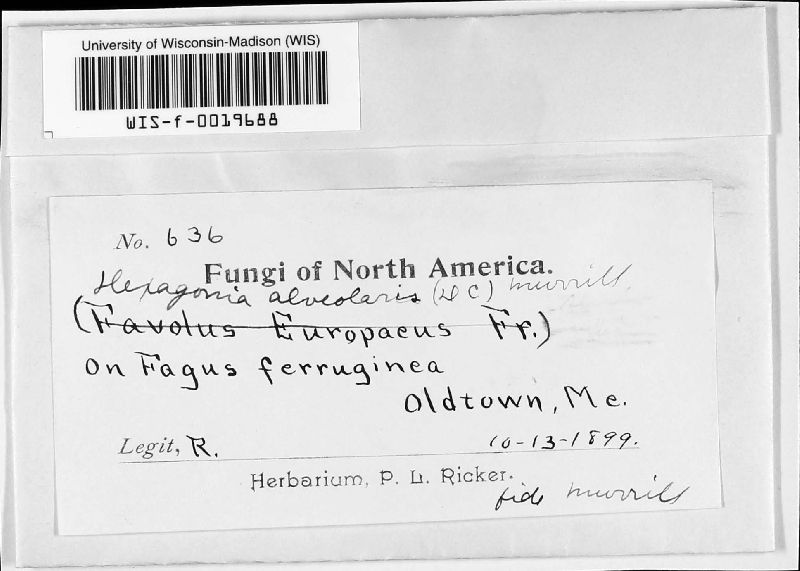 University of Wisconsin-Madison (WIS)
WIS-f-0019688
No. 636
Fungi of North America.
Hexagonia alveolaris (DC) Murrill.
(Favolus Europaeus Fr.)
On Fagus ferruginea
Oldtown, Me.
Legit, R. 10-13-1899.
Herbarium, P. L. Ricker.
fide Murrill